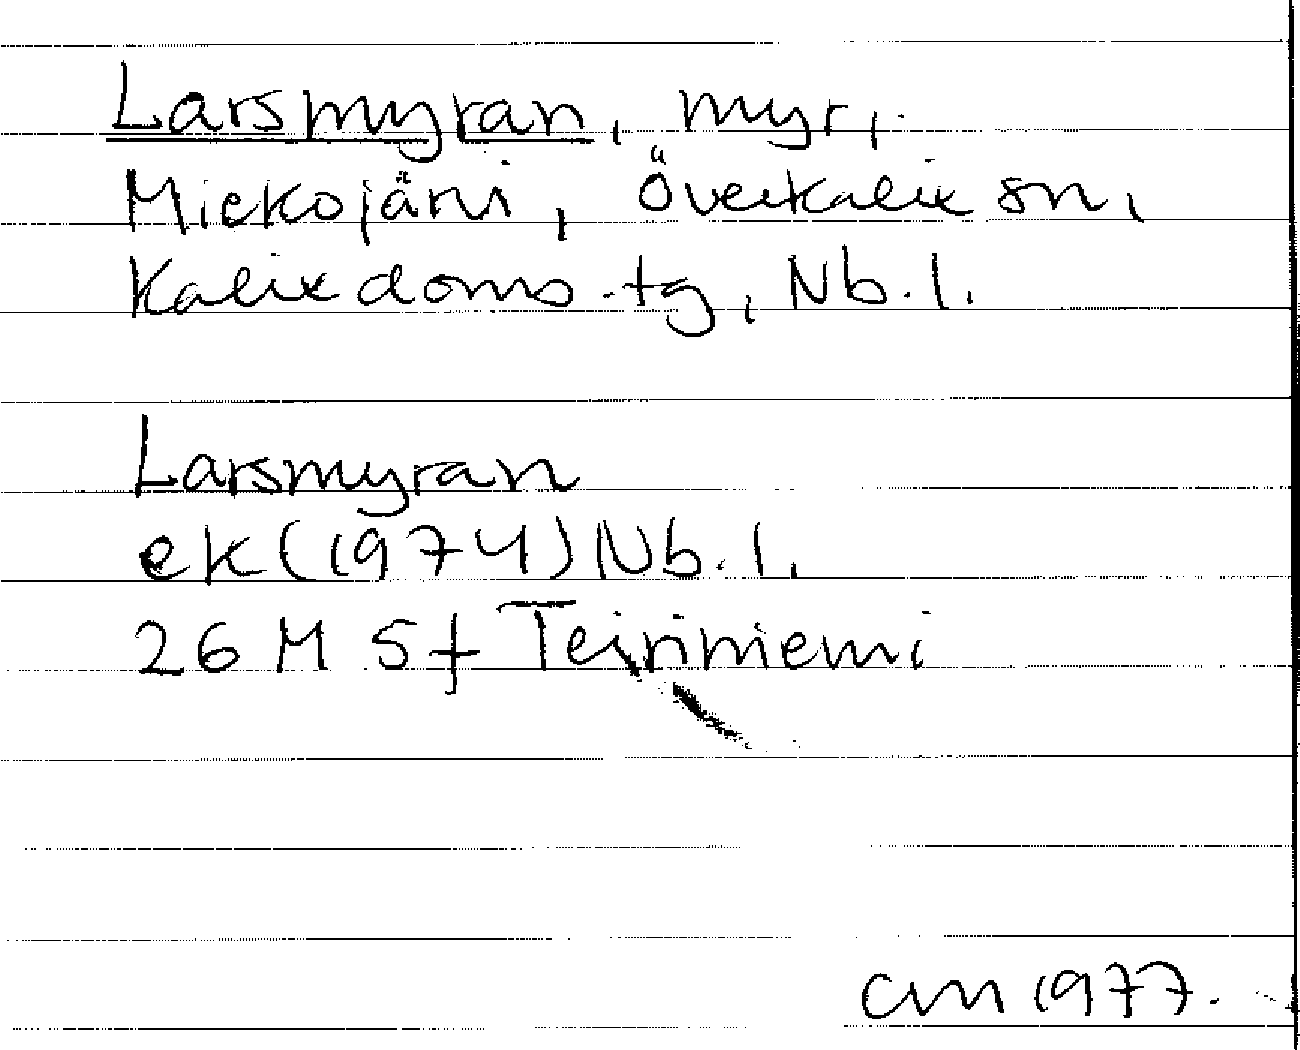 Larsmyran, myr,
Miekojärvi, Överkalix sn,
Kalix doms.tg, Nb.l.
Larsmyran
ek (1974) Nb.l.
26 M 5f Teiriniemi
cm 1977.